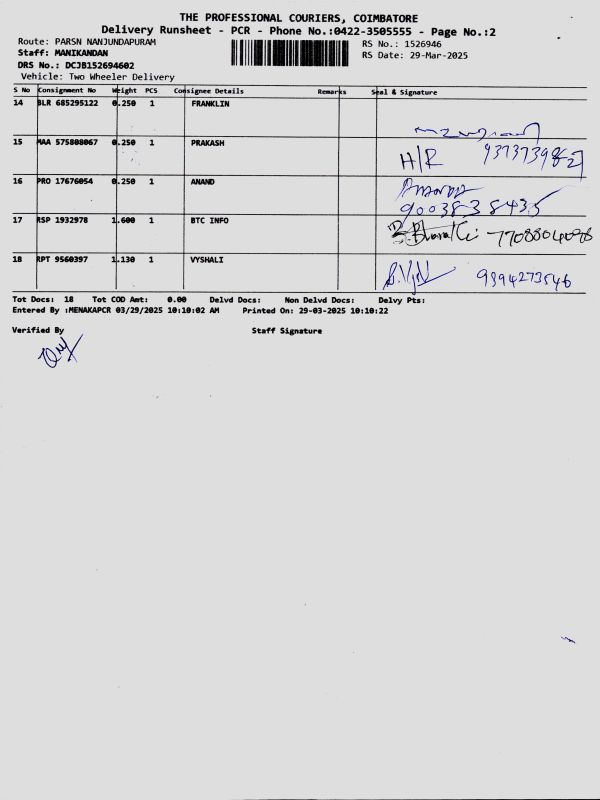 THE PROFESSIONAL COURIERS, COIMBATORE
Delivery Runsheet - PCR - Phone No.:0422-3505555 - Page No.:2
Route: PARSN NANJUNDAPURAM
RS No.: 1526946
Staff: MANIKANDAN
RS Date: 29-Mar-2025
DRS No.: DCJB152694602
Vehicle: Two Wheeler Delivery
S No Consignment No Weight PCS Consignee Details Remarks Seal & Signature
14 BLR 685295122 0.250 1 FRANKLIN
15 MAA 575808067 0.250 1 PRAKASH H/R
16 PRO 17676054 0.250 1 ANAND Anand
9003838435
17 RSP 1932978 1.600 1 BTC INFO Bharathi
18 RPT 9560397 1.130 1 VYSHALI 9994273546
Tot Docs: 18 Tot COD Amt: 0.00 Delvd Docs: Non Delvd Docs: Delvy Pts:
Entered By :MENAKAPCR 03/29/2025 10:10:02 AM Printed On: 29-03-2025 10:10:22
Verified By Staff Signature